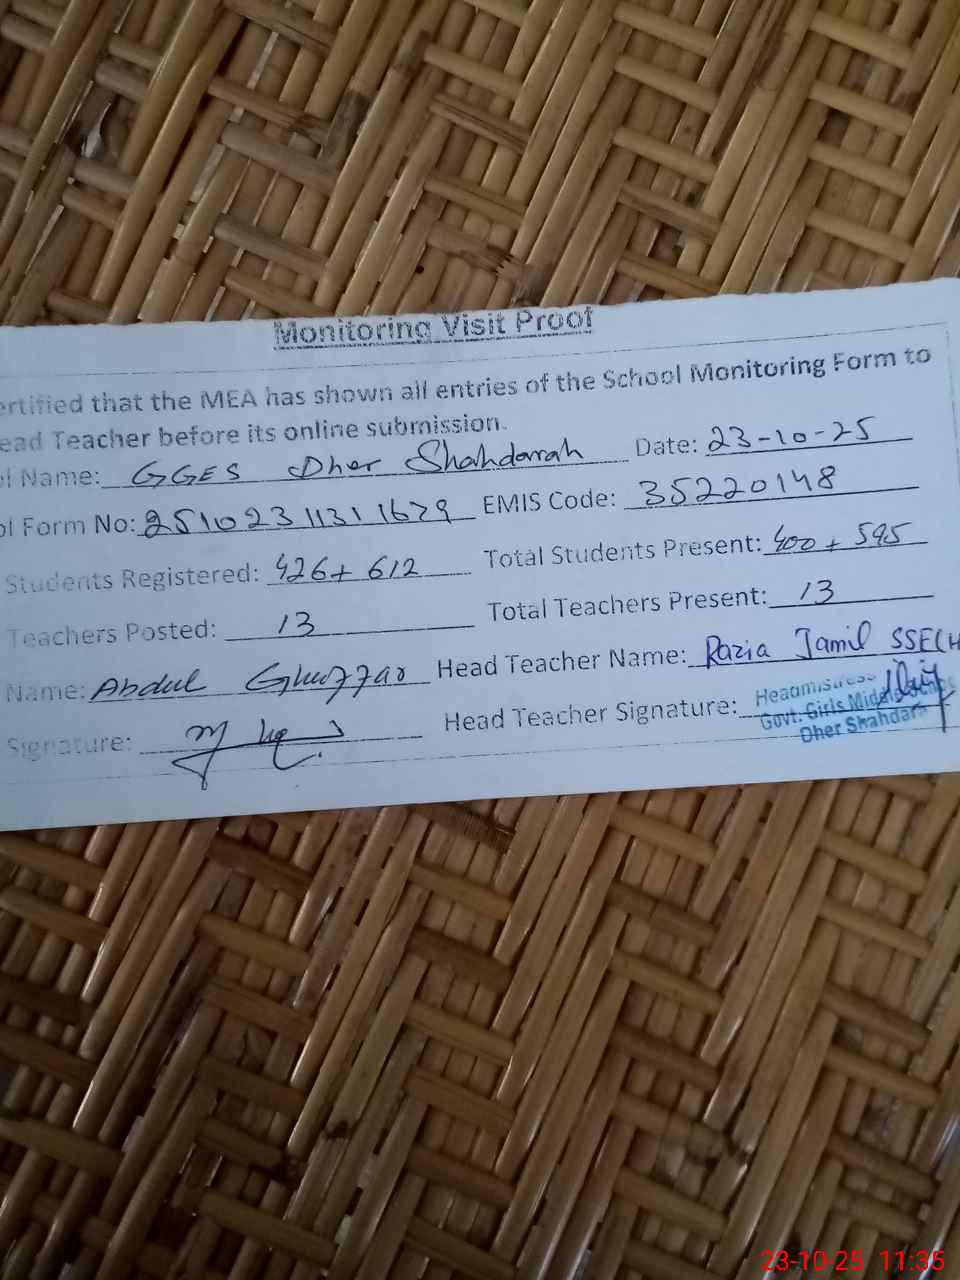 Monitoring Visit Proof
ertified that the MEA has shown all entries of the School Monitoring Form to
ead Teacher before its online submission.
ol Name: GGES Dher Shahdarah Date: 23-10-25
ol Form No: 25102311311629 EMIS Code: 35220148
Students Registered: 426+ 612 Total Students Present: 400 + 595
Teachers Posted: 13 Total Teachers Present: 13
Name: Abdul Ghuffar Head Teacher Name: Razia Jamil SSE(H
Signature: Head Teacher Signature:
Headmistress
Govt. Girls Middle
Dher Shahdara
23-10-25 11:35